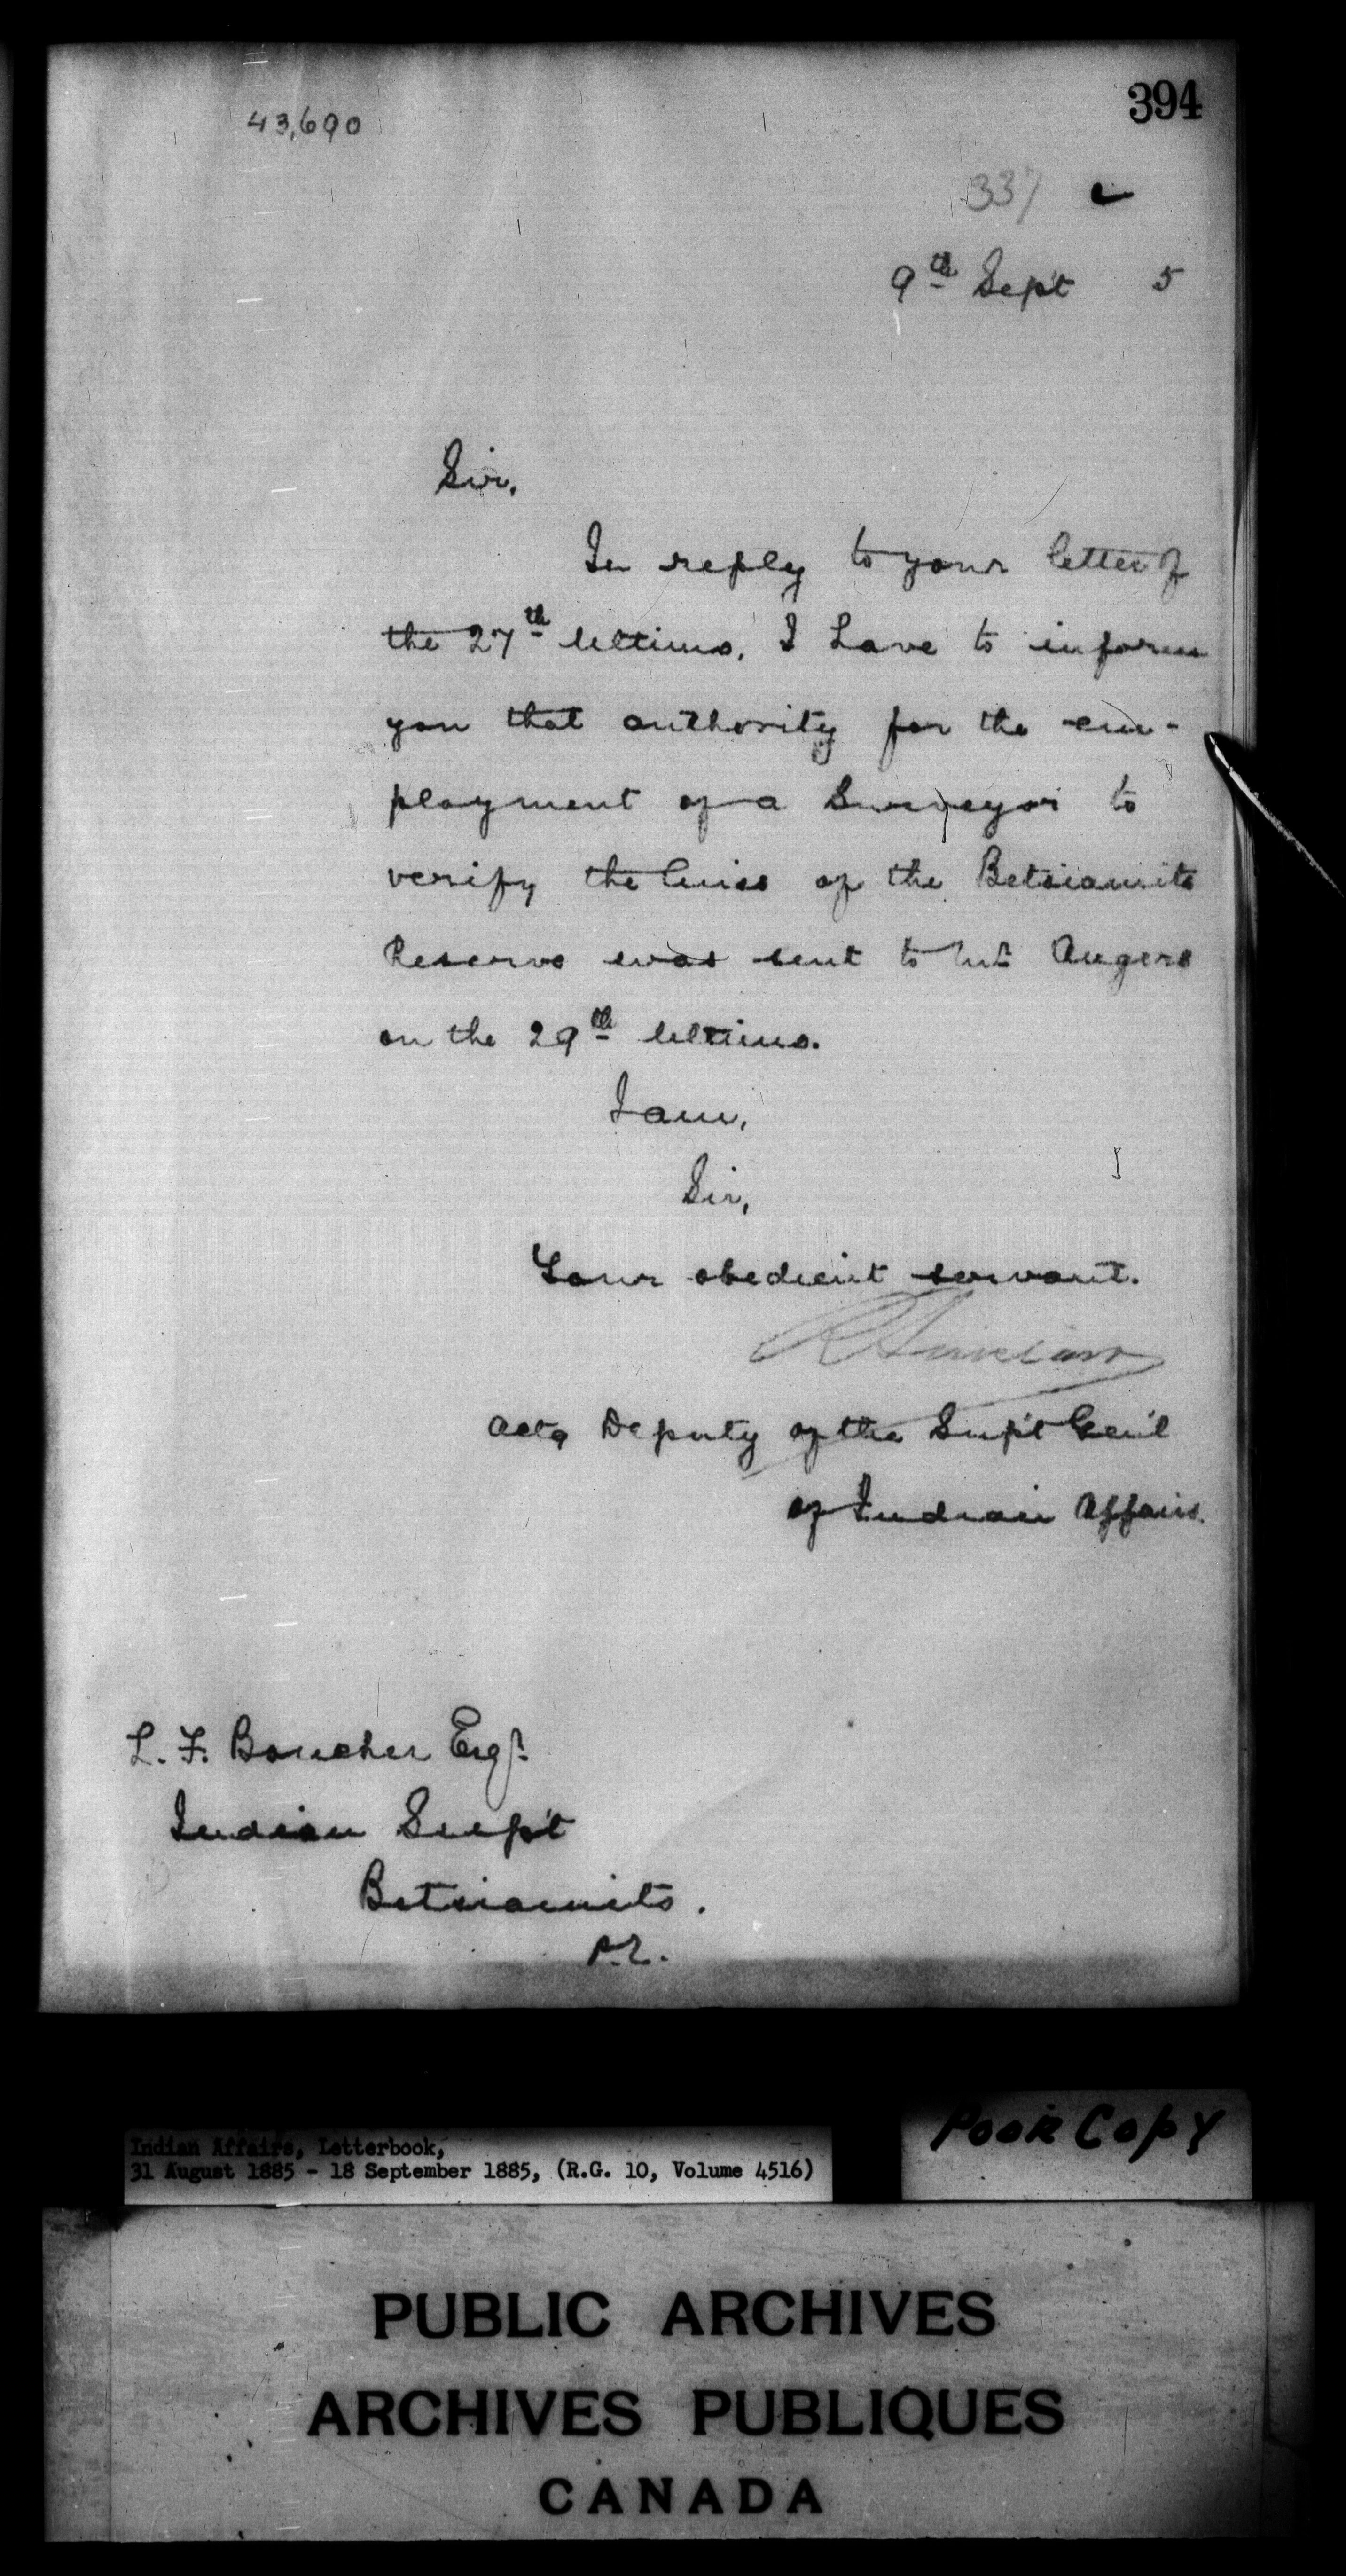 394
43,690
337
9th Sept 5
Sir,
In reply to your letter of
the 27th ultimo, I have to inform
you that authority for the em-
ployment of a Surveyor to
verify the lines of the Betsiamits
Reserve was sent to Mr. Angers
on the 29th ultimo.
I am,
Sir,
Your obedient servant.
R Sinclair
Actg Deputy of the Supt Gen'l
of Indian Affairs.
L. F. Boucher Esqr.
Indian Supt
Betsiamits.
P.Q.
Poor Copy
Indian Affairs, Letterbook,
31 August 1885 - 18 September 1885, (R.G. 10, Volume 4516)
PUBLIC ARCHIVES
ARCHIVES PUBLIQUES
CANADA